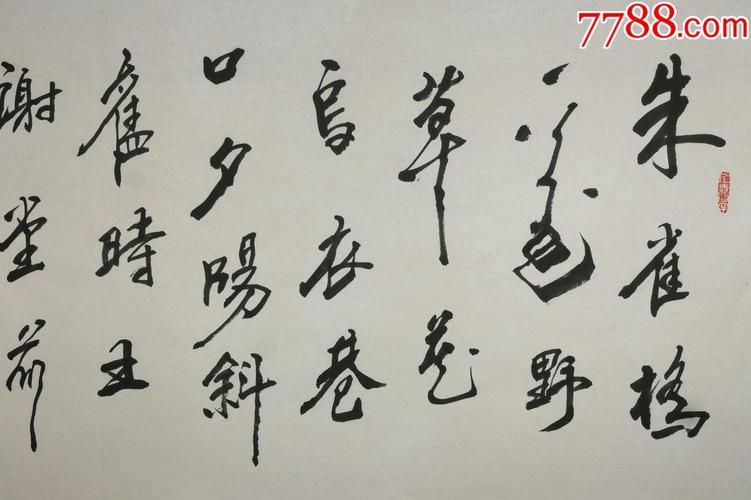 7788.com
中国收藏热线
朱雀橋
邊野
草花
烏衣巷
口夕陽斜
舊時王
謝堂前